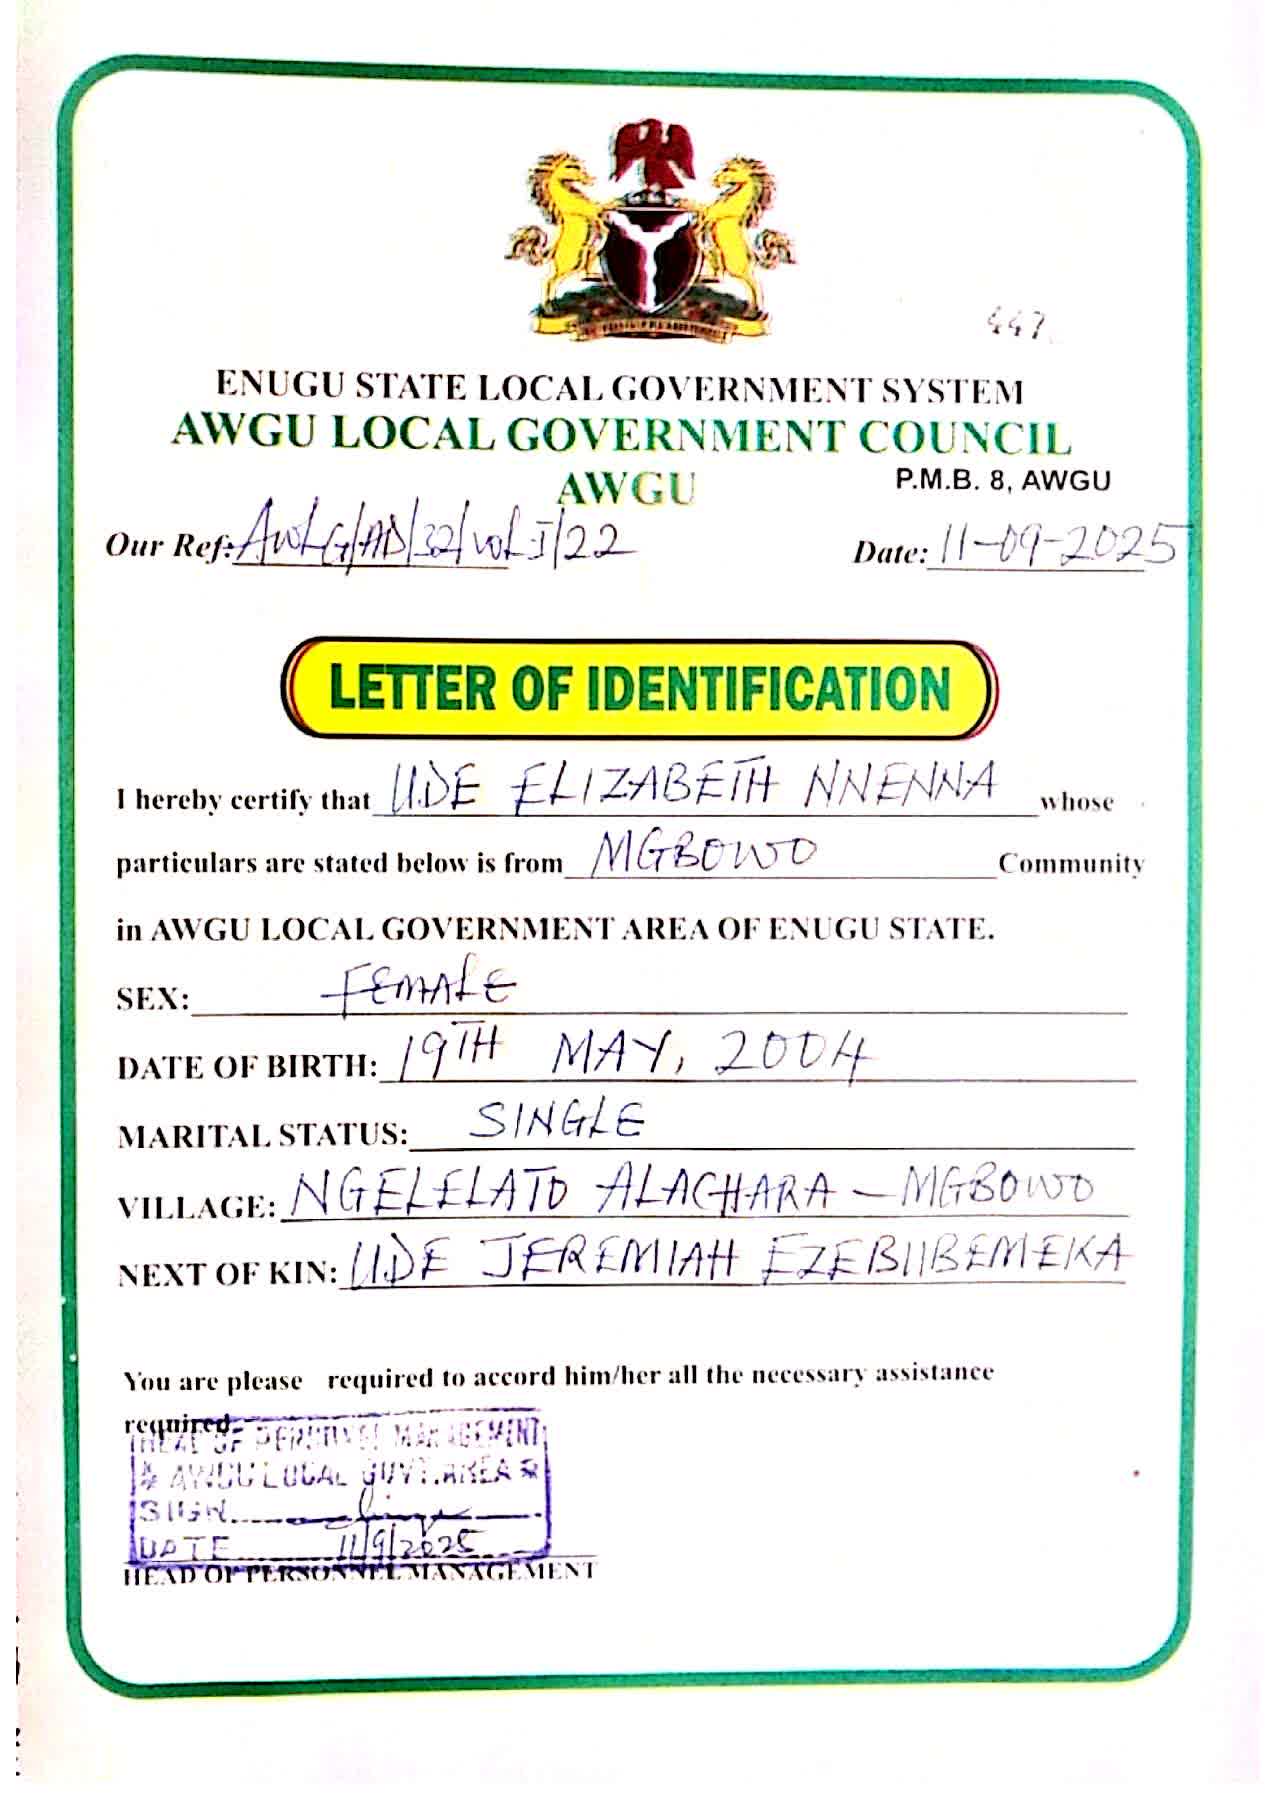 447
ENUGU STATE LOCAL GOVERNMENT SYSTEM
AWGU LOCAL GOVERNMENT COUNCIL
AWGU
P.M.B. 8, AWGU
Our Ref: AWLG/AD/32/VOL I/22
Date: 11-09-2025
LETTER OF IDENTIFICATION
I hereby certify that UDE ELIZABETH NNENNA whose
particulars are stated below is from MGBOWO Community
in AWGU LOCAL GOVERNMENT AREA OF ENUGU STATE.
SEX: FEMALE
DATE OF BIRTH: 19TH MAY, 2004
MARITAL STATUS: SINGLE
VILLAGE: NGELELATO ALACHARA - MGBOWO
NEXT OF KIN: UDE JEREMIAH EZEBIIBEMEKA
You are please required to accord him/her all the necessary assistance
required
HEAD OF PERSONNEL MANAGEMENT
& AWGU LOCAL GOVT. AREA &
SIGN
DATE 11/9/2025
HEAD OF PERSONNEL MANAGEMENT